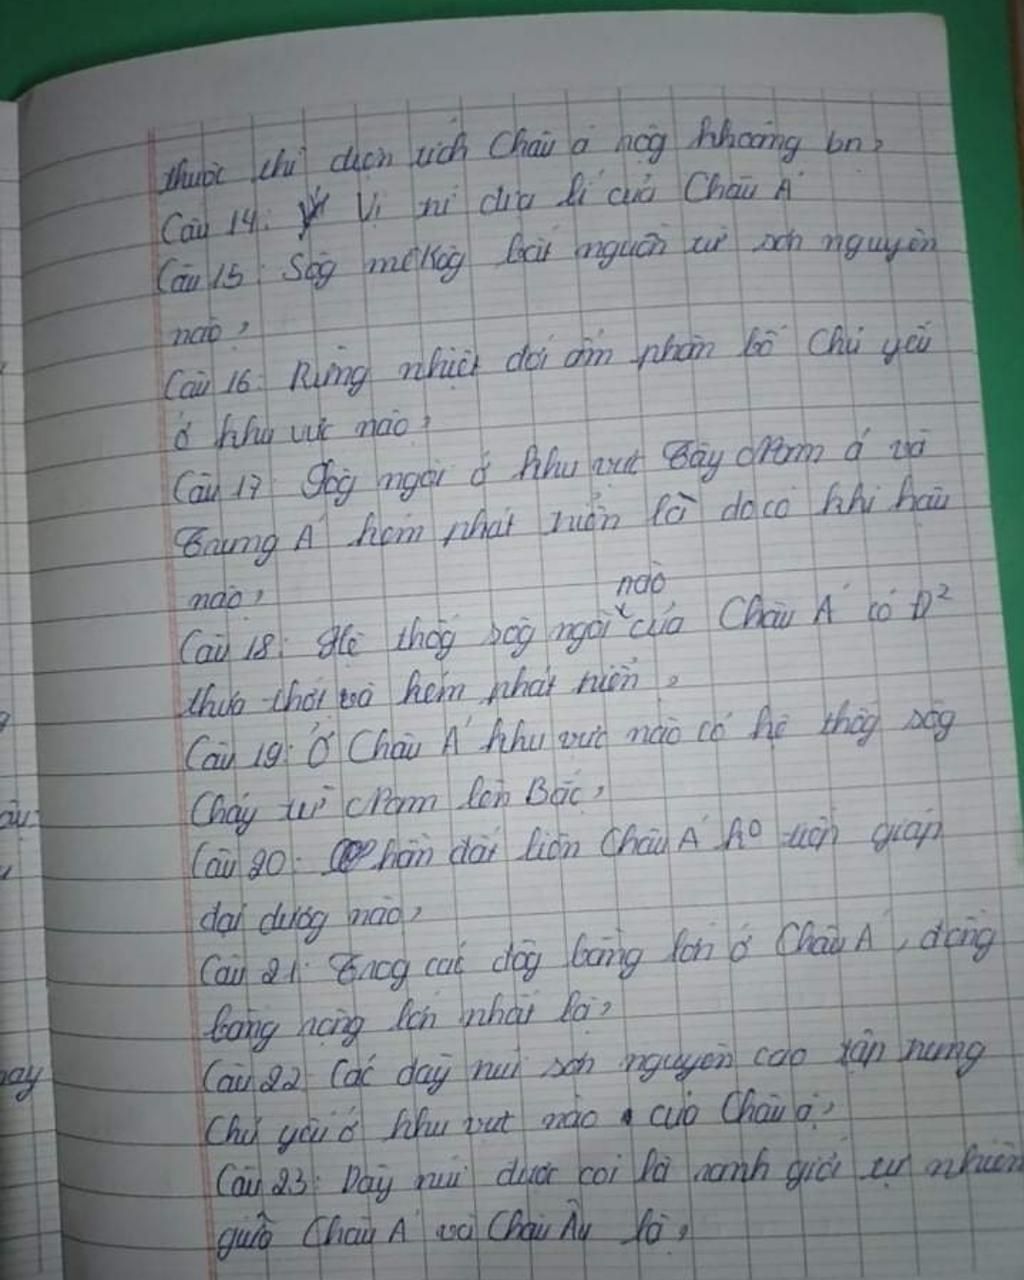 thuộc thì diện tích Châu á rộg khoảng bn?
Câu 14: Vị trí địa lí của Châu Á
Câu 15: Sôg mêKôg bắt nguồn từ sơn nguyên
nào?
Câu 16: Rừng nhiệt đới ẩm phân bố chủ yếu
ở khu vực nào?
Câu 17: Sôg ngòi ở khu vực Tây Nam á và
Trung Á kém phát triển là do có khí hậu
nào?
nào
Câu 18: Hệ thốg sôg ngòi của Châu Á có Đ²
thưa thớt và kém phát triển?
Câu 19: Ở Châu Á khu vực nào có hệ thốg sôg
chảy từ Nam lên Bắc?
Câu 20: Phần đất liền Châu Á ko tiếp giáp
đại dươg nào?
Câu 21: Trog các đồg bằng lớn ở Châu Á, đồng
bằng rộng lớn nhất là?
Câu 22: Các dãy núi sơn nguyên cao tập trung
chủ yếu ở khu vực nào của Châu á?
Câu 23: Dãy núi được coi là ranh giới tự nhiên
giữa Châu Á và Châu Âu là?